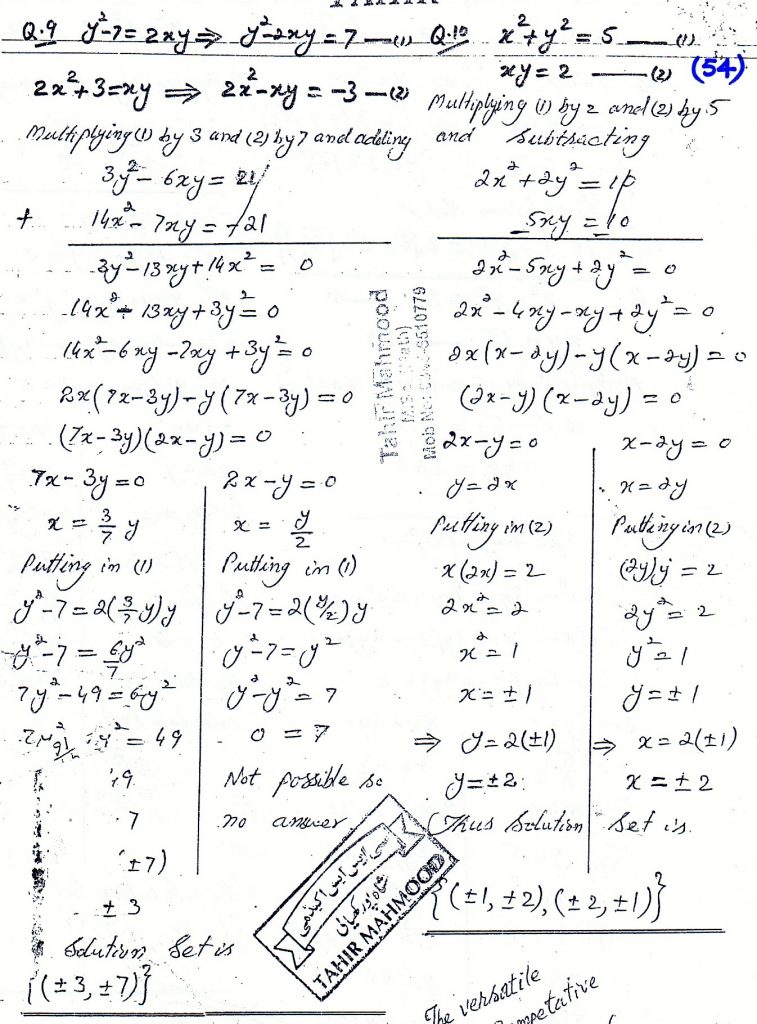 Q.9 y²-7=2xy ⇒ y²-2xy=7 —(1)
2x²+3=xy ⇒ 2x²-xy=-3 —(2)
Multiplying (1) by 3 and (2) by 7 and adding
3y²-6xy=21
+ 14x²-7xy=-21
3y²-13xy+14x²=0
14x²-13xy+3y²=0
14x²-6xy-7xy+3y²=0
2x(7x-3y)-y(7x-3y)=0
(7x-3y)(2x-y)=0
7x-3y=0
x=3/7 y
Putting in (1)
y²-7=2(3/7 y)y
y²-7=6y²/7
7y²-49=6y²
y²=49
±7)
±3
Solution Set is
{(±3,±7)}
2x-y=0
x=y/2
Putting in (1)
y²-7=2(y/2)y
y²-7=y²
y²-y²=7
0=7
Not possible so
no answer
Q.10 x²+y²=5 —(1)
xy=2 —(2)
(54)
Multiplying (1) by 2 and (2) by 5
and Subtracting
2x²+2y²=10
-5xy=10
2x²-5xy+2y²=0
2x²-4xy-xy+2y²=0
2x(x-2y)-y(x-2y)=0
(2x-y)(x-2y)=0
2x-y=0
y=2x
Putting in (2)
x(2x)=2
2x²=2
x²=1
x=±1
⇒ y=2(±1)
y=±2
x-2y=0
x=2y
Putting in (2)
(2y)y=2
2y²=2
y²=1
y=±1
⇒ x=2(±1)
x=±2
Thus Solution Set is
{(±1,±2),(±2,±1)}
Tahir Mahmood
TAHIR MAHMOOD
The versatile